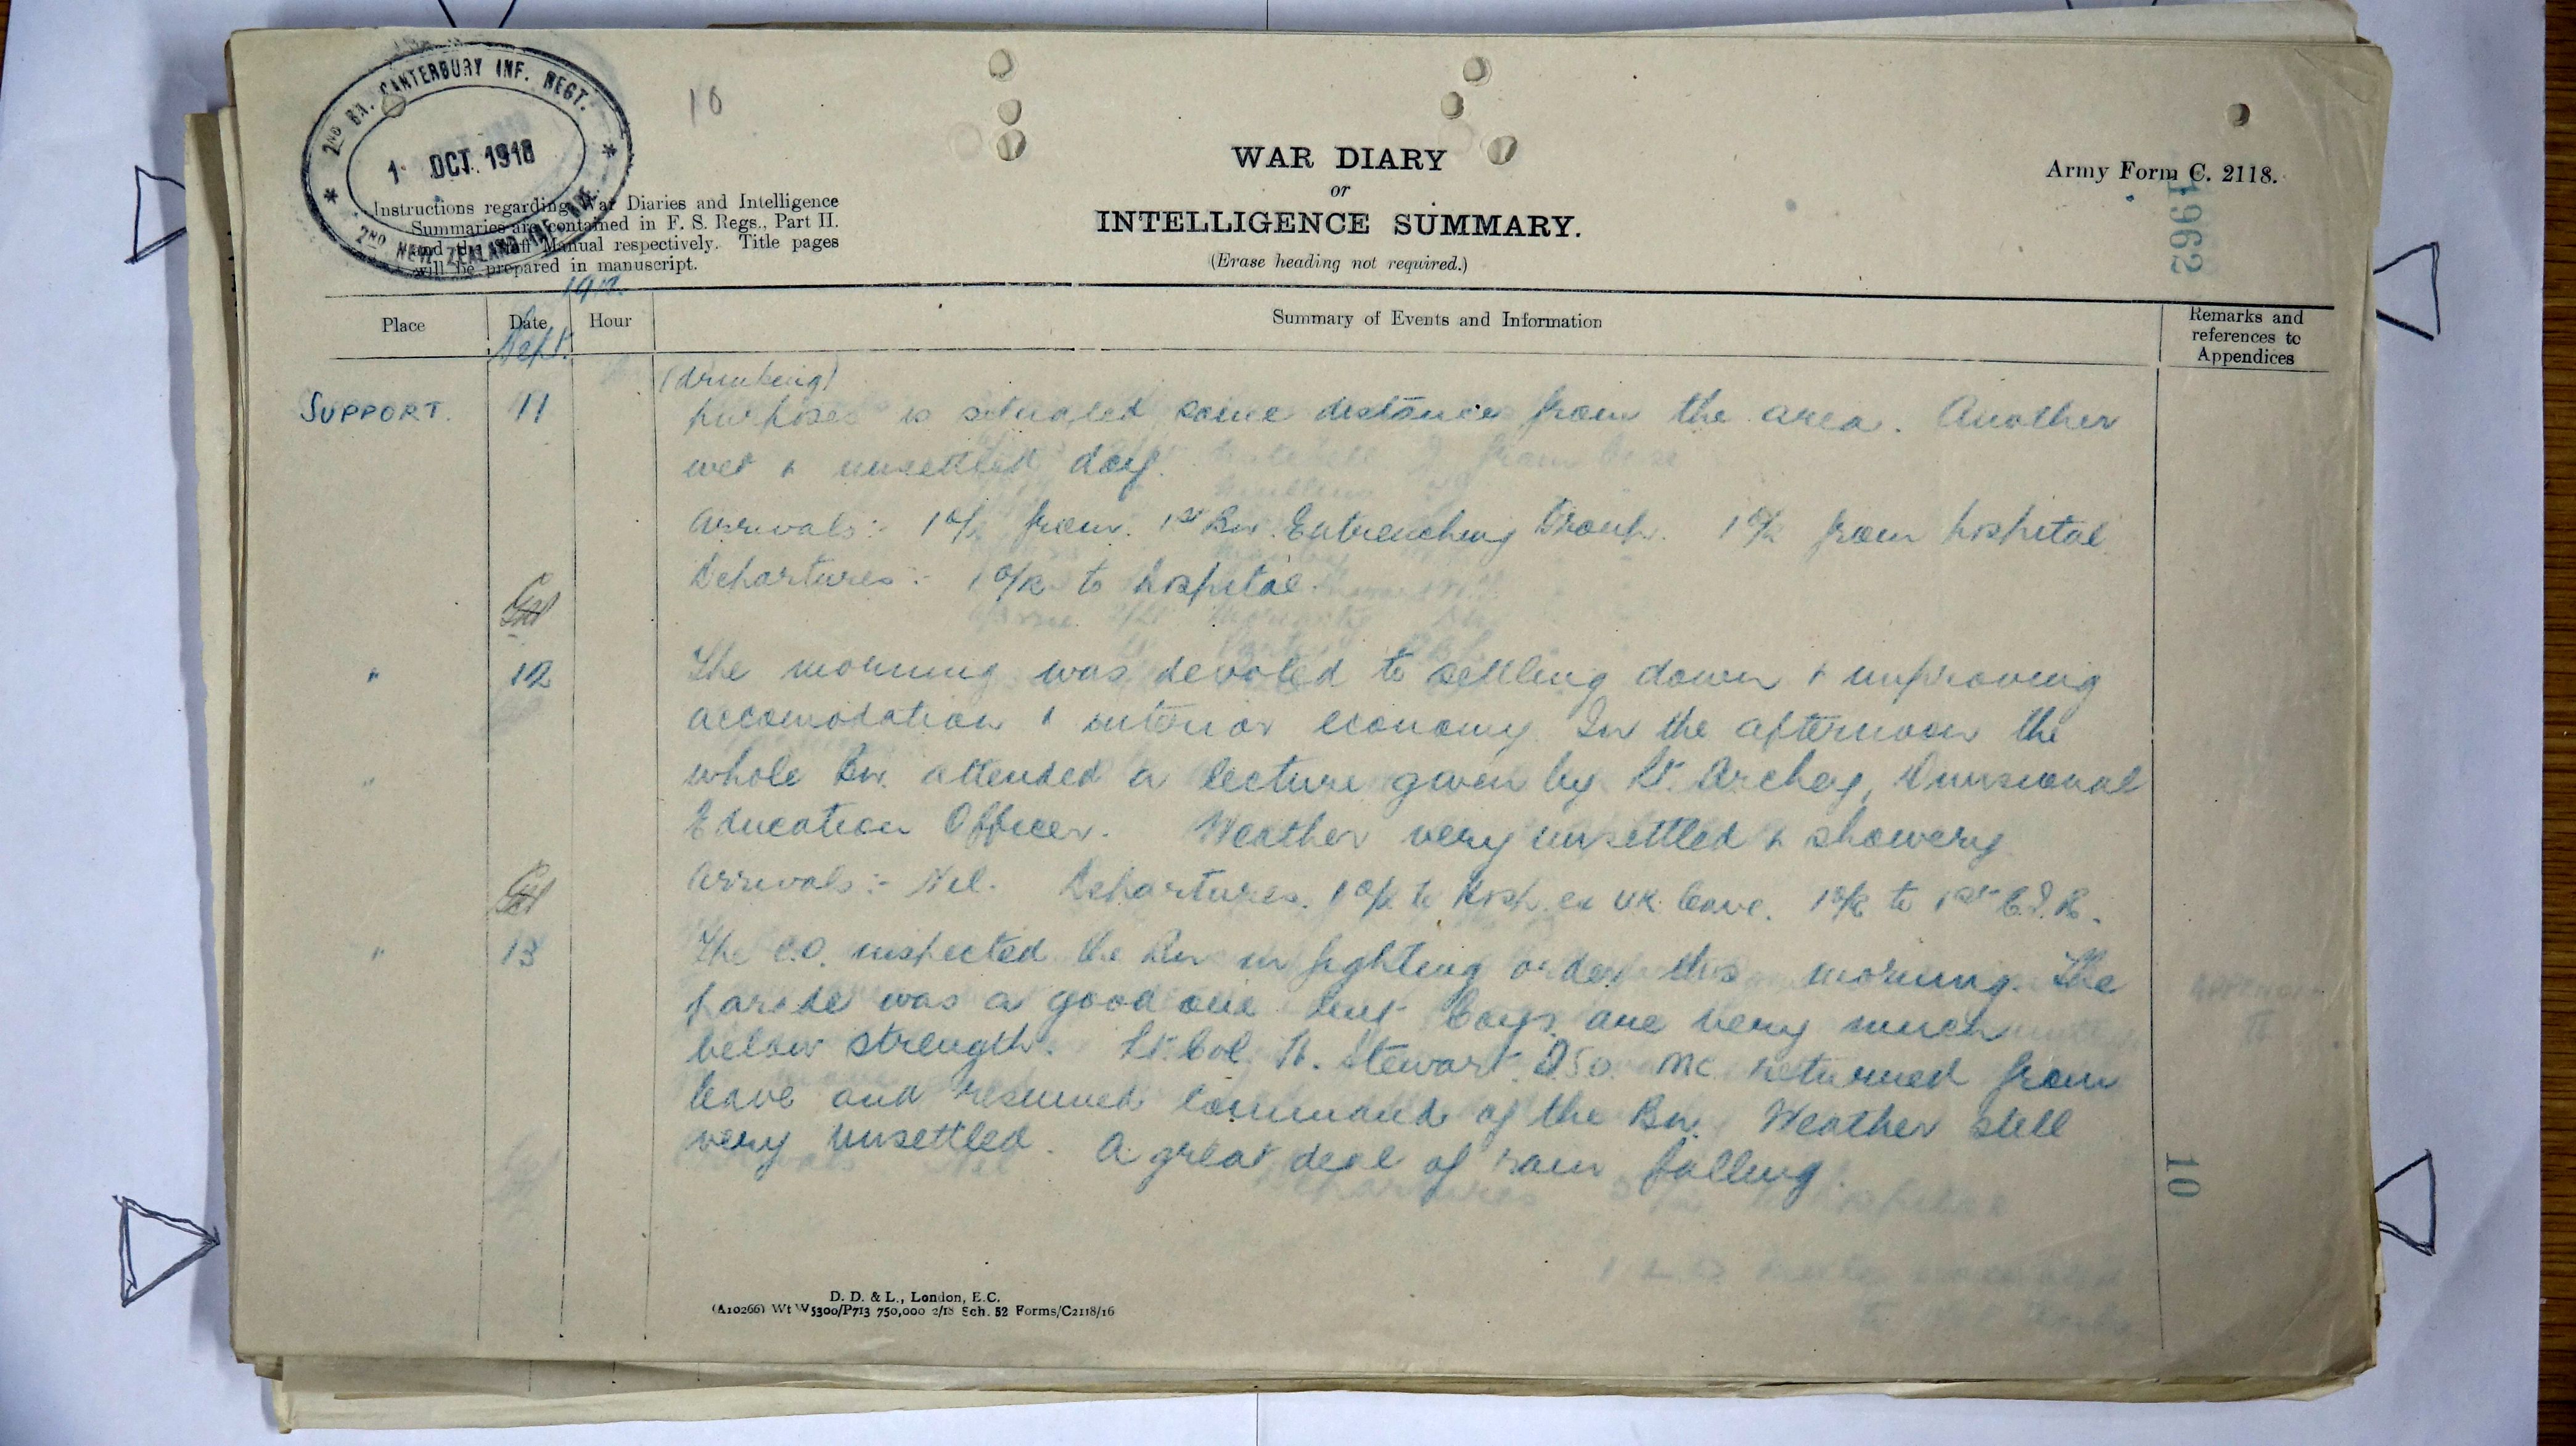 2ND BN. CANTERBURY INF. REGT.
1 OCT. 1918
2ND NEW ZEALAND INF.
10
WAR DIARY
or
INTELLIGENCE SUMMARY.
(Erase heading not required.)
Army Form C. 2118.
1962
Instructions regarding War Diaries and Intelligence
Summaries are contained in F. S. Regs., Part II.
and the Staff Manual respectively. Title pages
will be prepared in manuscript.
Place
Date
Hour
Summary of Events and Information
Remarks and
references to
Appendices
Sept.
(drinking)
SUPPORT. 11 purposes is situated some distance from the area. Another
wet & unsettled day.
Arrivals:- 1 O/R from 1st Bn. Entrenching Group. 1 O/R from hospital
Departures:- 1 O/R to hospital.
" 12 The morning was devoted to settling down & improving
accomodation & interior economy. In the afternoon the
whole Bn. attended a lecture given by Lt. Archey, Divisional
Education Officer. Weather very unsettled & showery
Arrivals:- Nil. Departures. 1 O/R to Hosp. ex UK leave. 1 O/R to 1st C.I.R.
" 13 The C.O. inspected the Bn in fighting order this morning. The
parade was a good one but Coys are very much
below strength. Lt. Col. H. Stewart D.S.O. MC returned from
leave and resumed command of the Bn. Weather still
very unsettled. A great deal of rain falling.
10
D. D. & L., London, E.C.
(A10266) Wt W5300/P713 750,000 2/18 Sch. 52 Forms/C2118/16